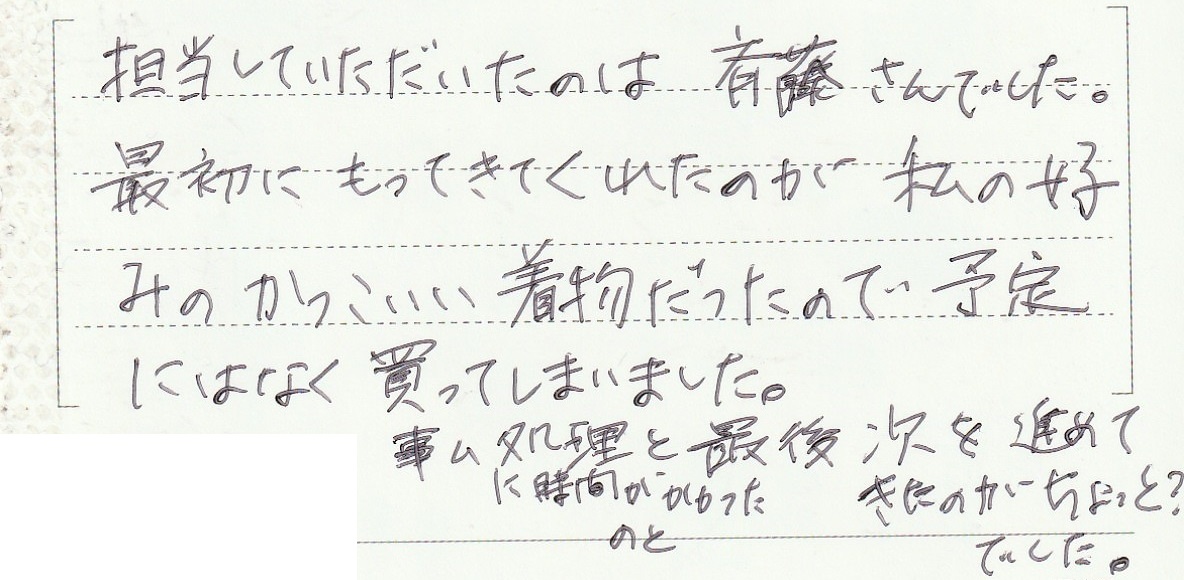 担当していただいたのは 斉藤さんでした。
最初にもってきてくれたのが 私の好
みの かっこいい 着物だったので 予定
にはなく 買ってしまいました。
事ム処理と最後 次を進めて
に時間がかかった きたのがちょっと?
のと でした。